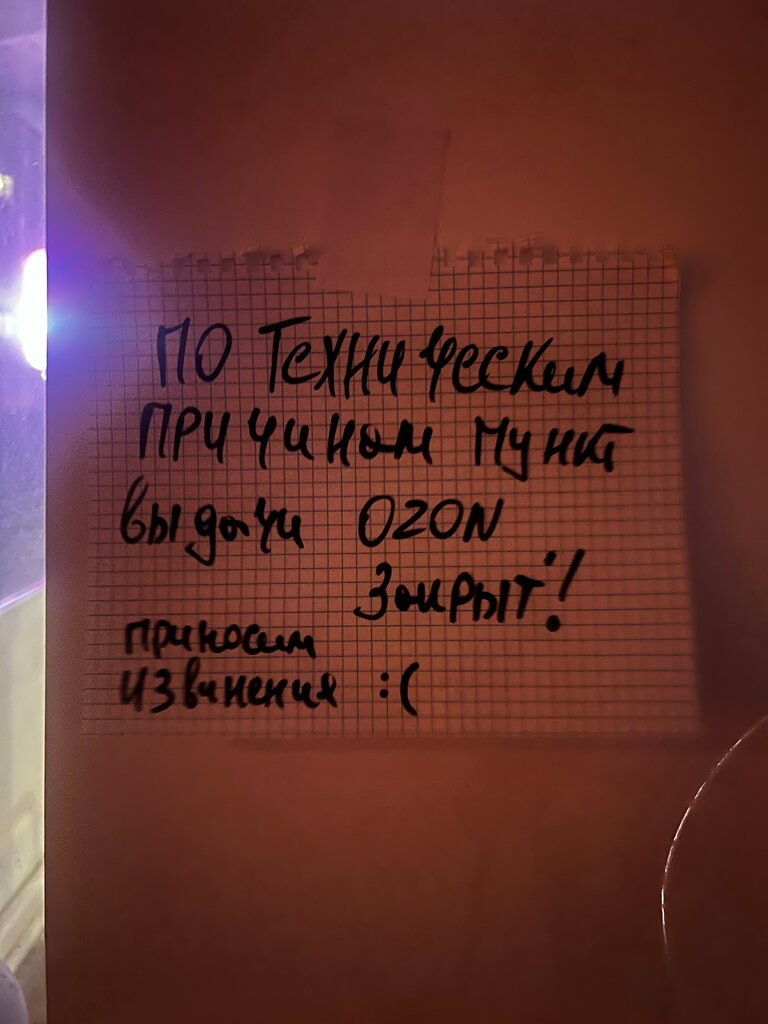 По техническим
причинам пункт
выдачи OZON
Закрыт!
приносим
извинения :(